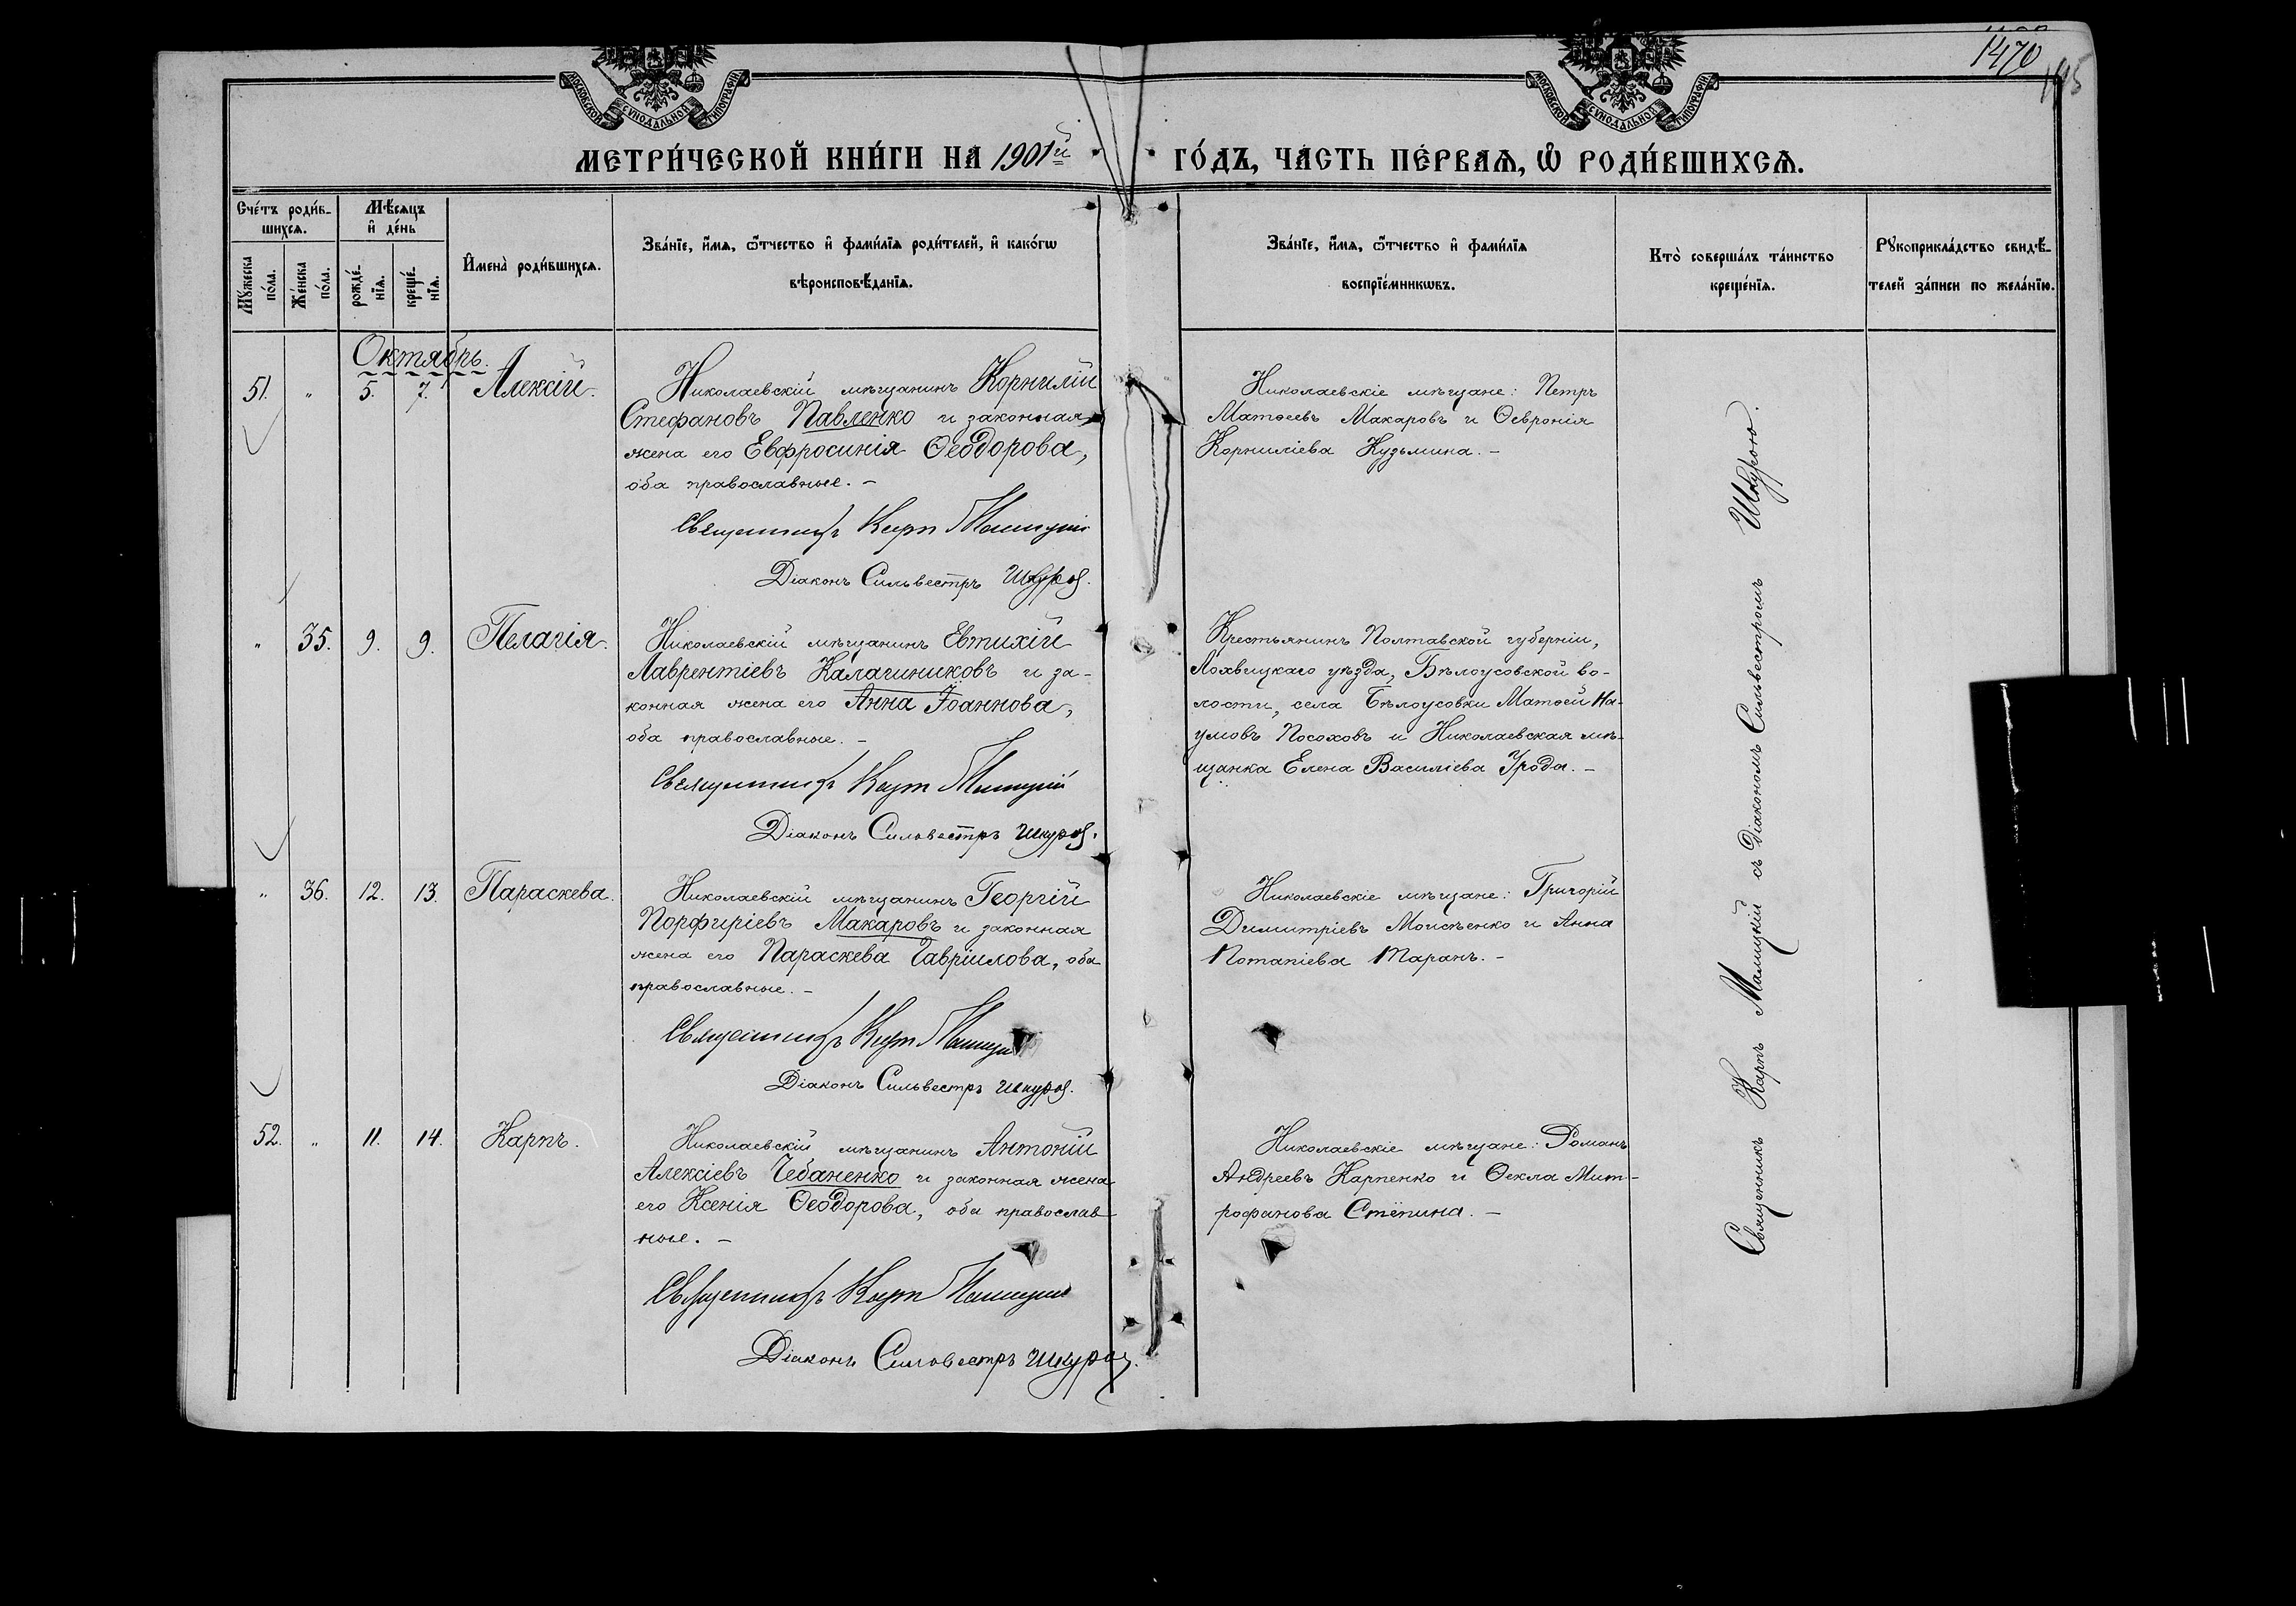 1470
145
МОСКОВСКОЙ СУНОДАЛЬНОЙ ТИПОГРАФІИ
МОСКОВСКОЙ СУНОДАЛЬНОЙ ТИПОГРАФІИ
МЕТРИ́ЧЕСКОЙ КНИ́ГИ НА 1901й
ГО́ДЪ, ЧА́СТЬ ПЕ́РВАѦ, Ѡ҆ РОДИ́ВШИХСѦ.
Сче́тъ роди́в-
шихсѧ.
Мѣ́сѧцъ
и҆ де́нь
Мꙋ́жеска
по́ла.
Же́нска
по́ла.
рожде́-
нїѧ.
креще́-
нїѧ.
И҆мена̀ роди́вшихсѧ.
Зва́нїе, и҆́мѧ, ѻ҆́тчество и҆ фами́лїѧ роди́телей, и҆ како́гѡ
вѣроисповѣ́данїѧ.
Зва́нїе, и҆́мѧ, ѻ҆́тчество и҆ фами́лїѧ
воспрїе́мникѡвъ.
Кто̀ соверша́лъ та́инство
креще́нїѧ.
Рꙋкоприкла́дство свидѣ́-
телей за́писи по жела́нїю.
Октябрь.
51. " 5. 7. Алексій.
Николаевскій мѣщанинъ Корнилій
Стефановъ Павленко и законная
жена его Евфросинія Ѳеодорова,
оба православные. –
Священникъ Карп Малицкій
Діаконъ Сильвестръ Шкуро.
Николаевскіе мѣщане: Петръ
Матѳеевъ Макаровъ и Ѳевронія
Корниліева Кузьмина. –
" 35. 9. 9. Пелагія.
Николаевскій мѣщанинъ Евтихій
Лаврентіевъ Калачниковъ и за-
конная жена его Анна Іоаннова,
оба православные. –
Священникъ Карп Малицкій
Діаконъ Сильвестръ Шкуро.
Крестьянинъ Полтавской губерніи,
Лохвицкаго уѣзда, Бѣлоусовской во-
лости, села Бѣлоусовки Матѳей На-
умовъ Посоховъ и Николаевская мѣ-
щанка Елена Василіева Урода. –
" 36. 12. 13. Параскева.
Николаевскій мѣщанинъ Георгій
Порфиріевъ Макаровъ и законная
жена его Параскева Гавріилова, оба
православные. –
Священникъ Карп Малицкій
Діаконъ Сильвестръ Шкуро.
Николаевскіе мѣщане: Григорій
Димитріевъ Моисѣенко и Анна
Потапіева Таранъ. –
52. " 11. 14. Карпъ.
Николаевскій мѣщанинъ Антоній
Алексіевъ Чебаненко и законная жена
его Ксенія Ѳеодорова, оба православ
ные. –
Священникъ Карп Малицкій
Діаконъ Сильвестръ Шкуро.
Николаевскіе мѣщане: Романъ
Андреевъ Карпенко и Ѳекла Мит-
рофанова Стёпина. –
Священникъ Карпъ Малицкій съ Діакономъ Сильвестромъ Шкурою.